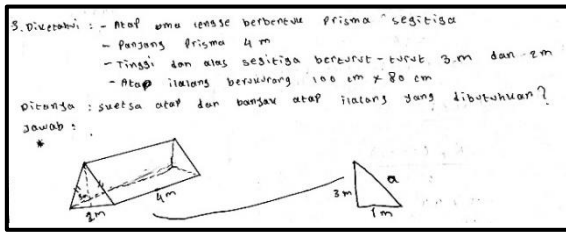 3. Diketahui : - Atap uma lengge berbentuk Prisma segitiga
- Panjang Prisma 4 m
- Tinggi dan alas segitiga berturut-turut 3 m dan 2 m
- Atap ilalang berukurang 100 cm x 80 cm
Ditanya : suetsa atap dan banyak atap ilalang yang dibutuhkan?
Jawab :
*
3m a
2m 4m 1m